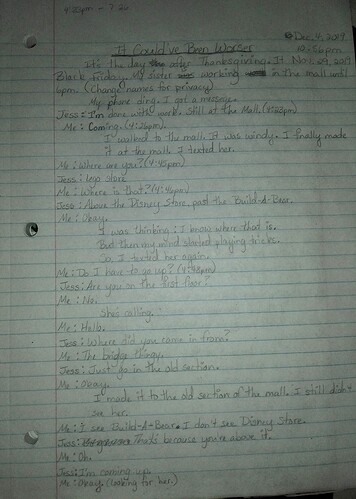 4:25pm - 7:20
Dec. 4, 2019
It Could've Been Worser
10:56pm
It's the day after Thanksgiving. It Nov. 29, 2019
Black Friday. My sister working in the mall until
6pm. (Change names for privacy)
My phone ding. I got a message.
Jess: I'm done with work. Still at the Mall. (4:23pm)
Me: Coming. (4:25pm)
I walked to the mall. It was windy. I finally made
it at the mall. I texted her.
Me: Where are you? (4:45pm)
Jess: lego store
Me: Where is that? (4:45pm)
Jess: Above the Disney Store, past the Build-A-Bear.
Me: Okay.
I was thinking: I know where that is.
But then my mind started playing tricks.
So I texted her again.
Me: Do I have to go up? (4:48pm)
Jess: Are you on the first floor?
Me: No.
She's calling.
Me: Hello.
Jess: Where did you come in from?
Me: The bridge thingy.
Jess: Just go in the old section.
Me: Okay.
I made it to the old section of the mall. I still didn't
see her.
Me: I see Build-A-Bear. I don't see Disney Store.
Jess: That's because you're above it.
Me: Oh.
Jess: I'm coming up.
Me: Okay. (looking for her)